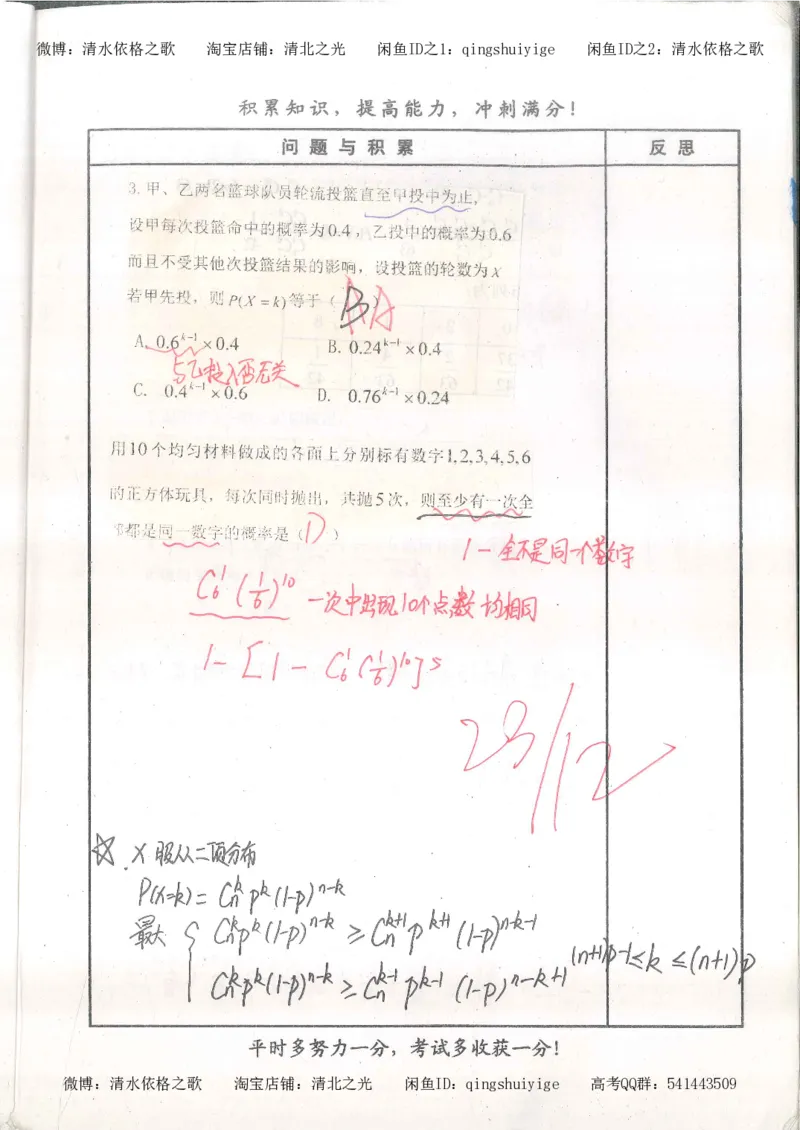 微博：清水依格之歌 淘宝店铺：清北之光 闲鱼ID之1：qingshuiyige 闲鱼ID之2：清水依格之歌
积累知识，提高能力，冲刺满分！
问题与积累 反思
3. 甲、乙两名篮球队员轮流投篮直至甲投中为止，
设甲每次投篮命中的概率为0.4，乙投中的概率为0.6
而且不受其他次投篮结果的影响，设投篮的轮数为X
若甲先投，则P(X=k)等于（B）A
A. 0.6^{k-1}×0.4 B. 0.24^{k-1}×0.4
与乙投入否无关
C. 0.4^{k-1}×0.6 D. 0.76^{k-1}×0.24
用10个均匀材料做成的各面上分别标有数字1,2,3,4,5,6
的正方体玩具，每次同时抛出，共抛5次，则至少有一次全
部都是同一数字的概率是（D）
1－全不是同一个数字
C_6^1(1/6)^{10} 一次中出现10个点数均相同
1-[1-C_6^1(1/6)^{10}]^5
23/12
☆. X服从二项分布
P(X=k)=C_n^k p^k(1-p)^{n-k}
最大 { C_n^k p^k(1-p)^{n-k} ≥ C_n^{k+1} p^{k+1} (1-p)^{n-k-1}
C_n^k p^k(1-p)^{n-k} ≥ C_n^{k-1} p^{k-1} (1-p)^{n-k+1} (n+1)p-1≤k≤(n+1)p
平时多努力一分，考试多收获一分！
微博：清水依格之歌 淘宝店铺：清北之光 闲鱼ID：qingshuiyige 高考QQ群：541443509